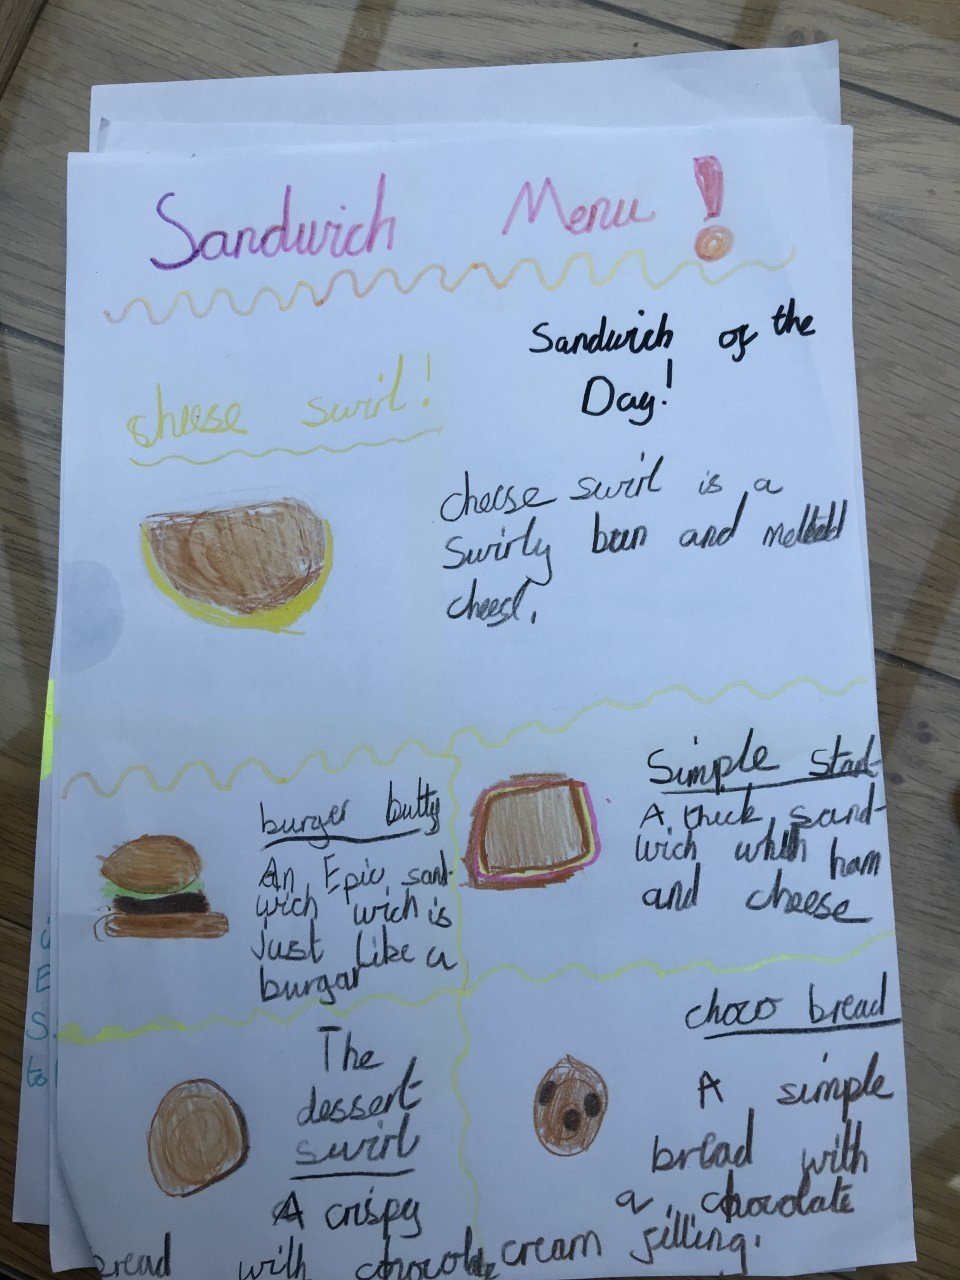 Sandwich Menu!
Sandwich of the
Day!
cheese swirl!
cheese swirl is a
swirly bun and melted
cheese.
burger butty
An Epic sand-
wich wich is
just like a
burgar
Simple Start
A thick sand-
wich with ham
and cheese
The
dessert
swirl
A crispy
bread with chocole
choco bread
A simple
bread with
a chocolate
cream filling.
to